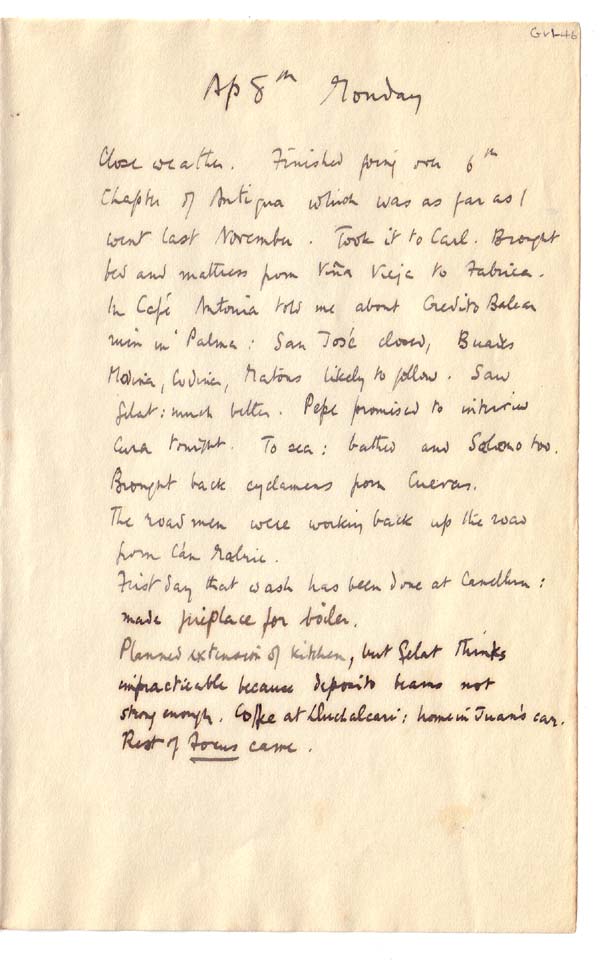 GVL46
Ap 8th Monday
Close weather. Finished going over 6th
Chapter of Antigua which was as far as I
went last November. Took it to Carl. Brought
bed and mattress from Viña Vieja to Fabrica.
In Café Antonia told me about Credito Balear
ruin in Palma: San José closed, Buades
Modina, Codina, Matons likely to follow. Saw
Gelat: much better. Pepe promised to interview
Cura tonight. To sea: bathed and Solomo too.
Brought back cyclamens from Cuevas.
The road men were working back up the road
from Can
First day that wash has been done at Canellun:
made fireplace for boiler.
Planned extension of kitchen, but Gelat thinks
impracticable because deposito beams not
strong enough. Coffee at Lluchalcari; home in Juan's car.
Rest of Focus came.